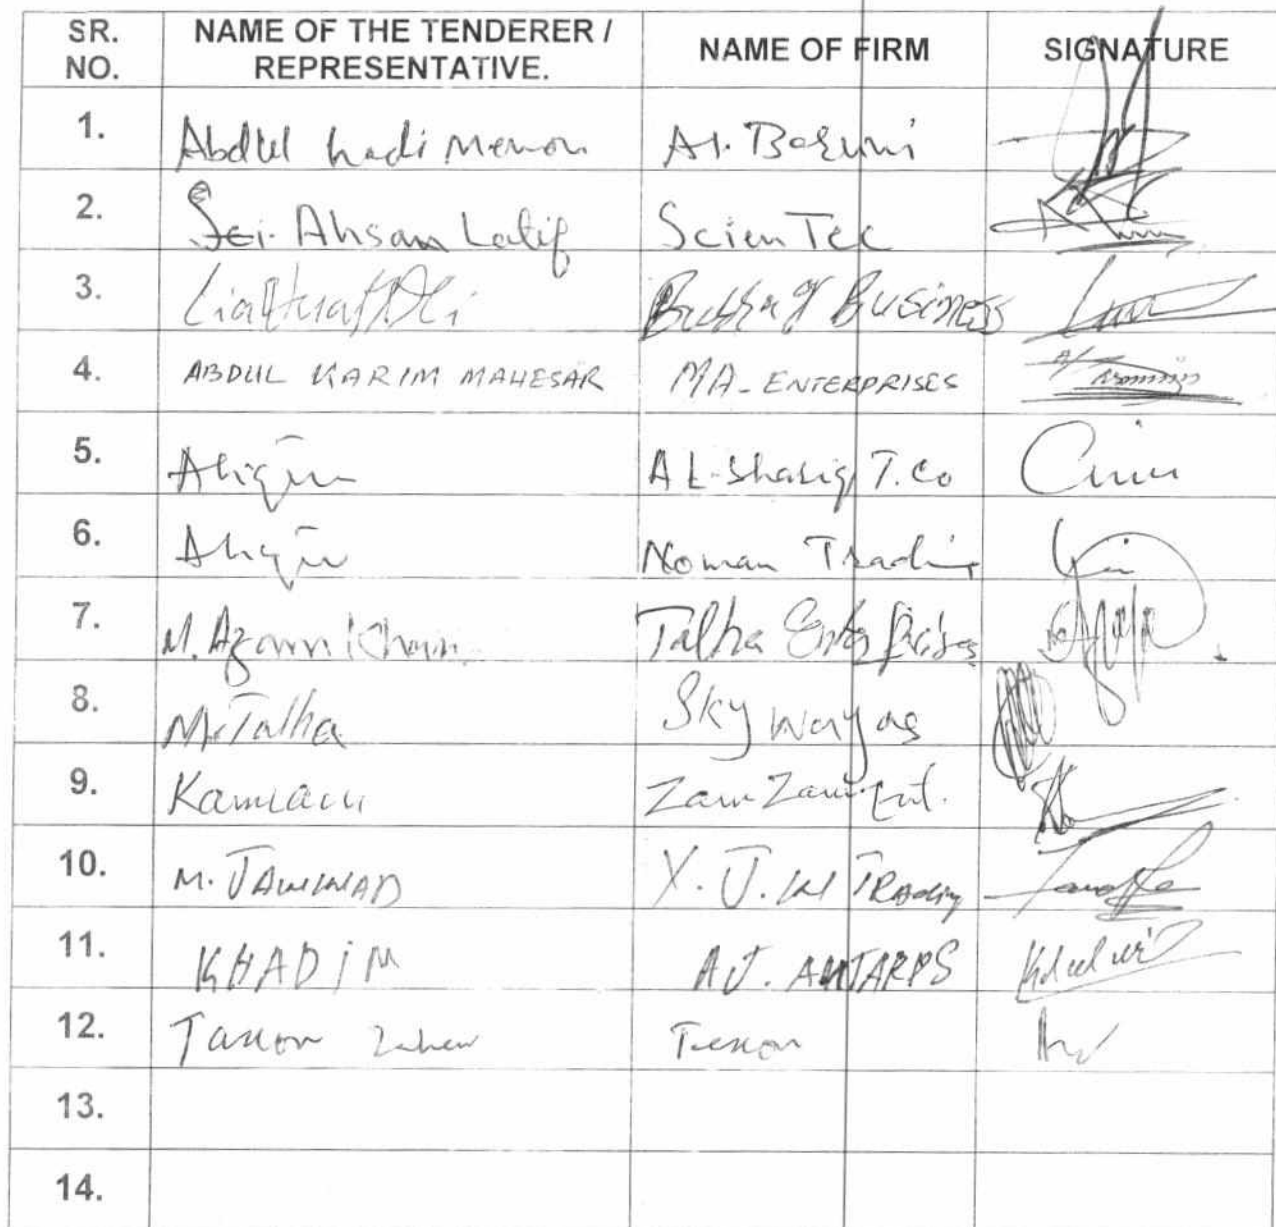 SR. NO. NAME OF THE TENDERER / REPRESENTATIVE. NAME OF FIRM SIGNATURE
1. Abdul hadi Memon Al. Beruni
2. Ahsan Latif ScienTec
3. Business
4. ABDUL KARIM MAHESAR MA-ENTERPRISES
5. AL-Shariq T.Co
6. Noman Trading
7. M. Azam Khan Talha Enterprises
8. M. Talha Sky ways
9. Kamran Zam Zam Ent.
10. M. JAWWAD Y. J. W TRADing
11. KHADiM AJ. ANTARPS
12.
13.
14.